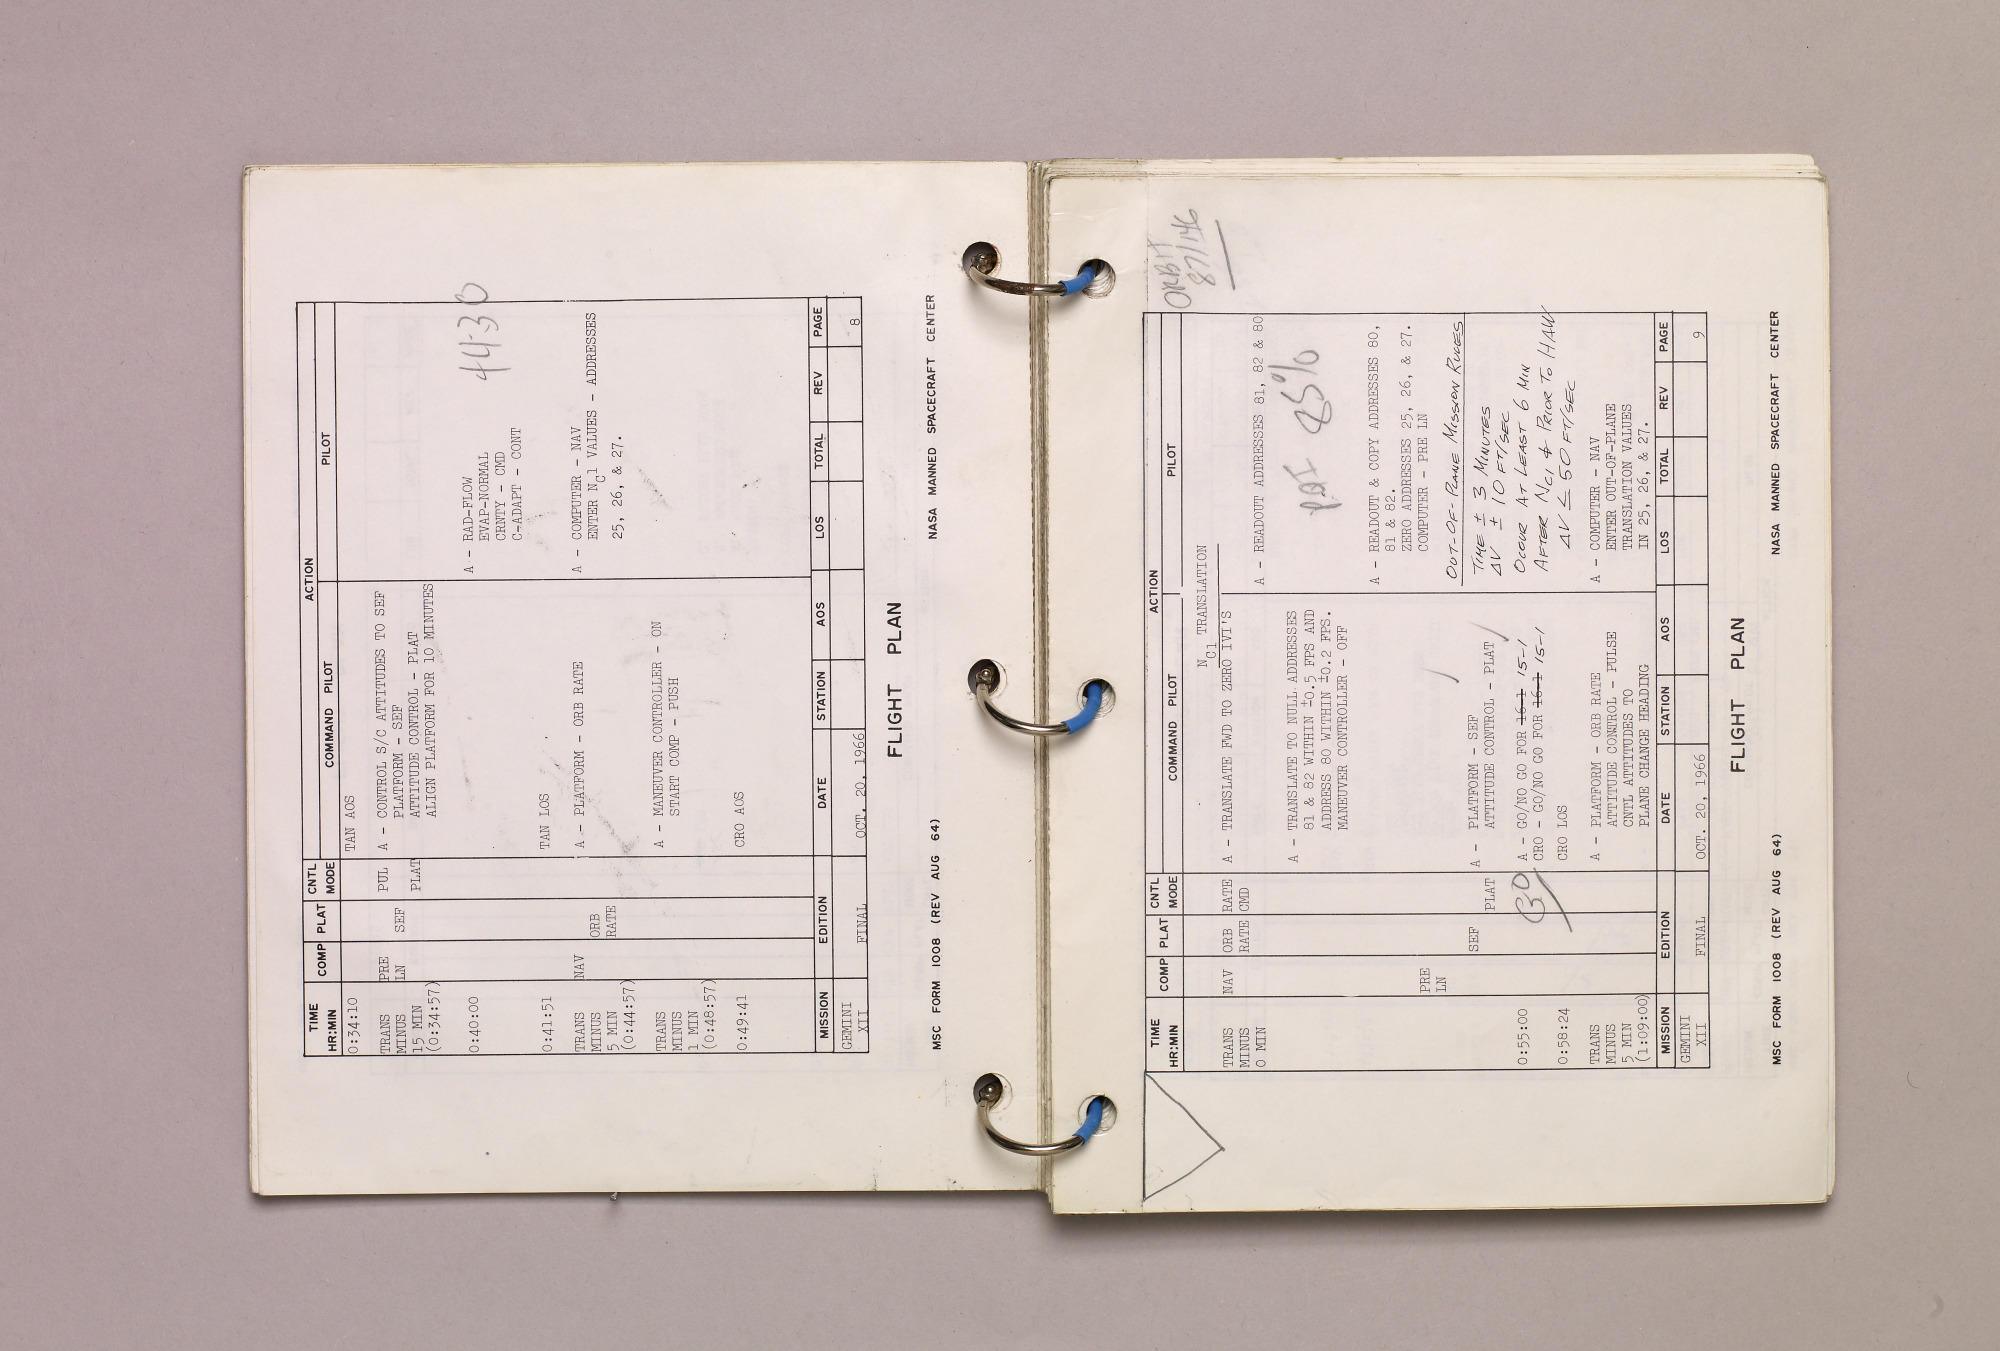 TIME
HR:MIN
COMP
PLAT
CNTL
MODE
ACTION
COMMAND PILOT
PILOT
0:34:10
TAN AOS
TRANS
MINUS
15 MIN
(0:34:57)
PRE
LN
SEF
PUL
PLAT
A - CONTROL S/C ATTITUDES TO SEF
PLATFORM - SEF
ATTITUDE CONTROL - PLAT
ALIGN PLATFORM FOR 10 MINUTES
0:40:00
A - RAD-FLOW
EVAP-NORMAL
CRNTY - CMD
C-ADAPT - CONT
44:30
0:41:51
TAN LOS
TRANS
MINUS
5 MIN
(0:44:57)
NAV
ORB
RATE
A - PLATFORM - ORB RATE
A - COMPUTER - NAV
ENTER NC1 VALUES - ADDRESSES
25, 26, & 27.
TRANS
MINUS
1 MIN
(0:48:57)
A - MANEUVER CONTROLLER - ON
START COMP - PUSH
0:49:41
CRO AOS
MISSION
EDITION
DATE
STATION
AOS
LOS
TOTAL
REV
PAGE
GEMINI
XII
FINAL
OCT. 20, 1966
8
FLIGHT PLAN
MSC FORM 1008 (REV AUG 64)
NASA MANNED SPACECRAFT CENTER
ORBIT
87/146
TIME
HR:MIN
COMP
PLAT
CNTL
MODE
ACTION
COMMAND PILOT
PILOT
NC1 TRANSLATION
TRANS
MINUS
0 MIN
NAV
ORB
RATE
RATE
CMD
A - TRANSLATE FWD TO ZERO IVI'S
A - READOUT ADDRESSES 81, 82 & 80
A - TRANSLATE TO NULL ADDRESSES
81 & 82 WITHIN ±0.5 FPS AND
ADDRESS 80 WITHIN ±0.2 FPS.
MANEUVER CONTROLLER - OFF
85%
A - READOUT & COPY ADDRESSES 80,
81 & 82.
ZERO ADDRESSES 25, 26, & 27.
COMPUTER - PRE LN
PRE
LN
OUT-OF-PLANE MISSION RULES
TIME ± 3 MINUTES
ΔV ± 10 FT/SEC
OCCUR AT LEAST 6 MIN
AFTER NC1 & PRIOR TO HAW
ΔV ≤ 50 FT/SEC
SEF
PLAT
A - PLATFORM - SEF
ATTITUDE CONTROL - PLAT
0:55:00
GO
A - GO/NO GO FOR 16-1 15-1
CRO - GO/NO GO FOR 16-1 15-1
0:58:24
CRO LOS
TRANS
MINUS
5 MIN
(1:09:00)
A - PLATFORM - ORB RATE
ATTITUDE CONTROL - PULSE
CNTL ATTITUDES TO
PLANE CHANGE HEADING
A - COMPUTER - NAV
ENTER OUT-OF-PLANE
TRANSLATION VALUES
IN 25, 26, & 27.
MISSION
EDITION
DATE
STATION
AOS
LOS
TOTAL
REV
PAGE
GEMINI
XII
FINAL
OCT. 20, 1966
9
FLIGHT PLAN
MSC FORM 1008 (REV AUG 64)
NASA MANNED SPACECRAFT CENTER